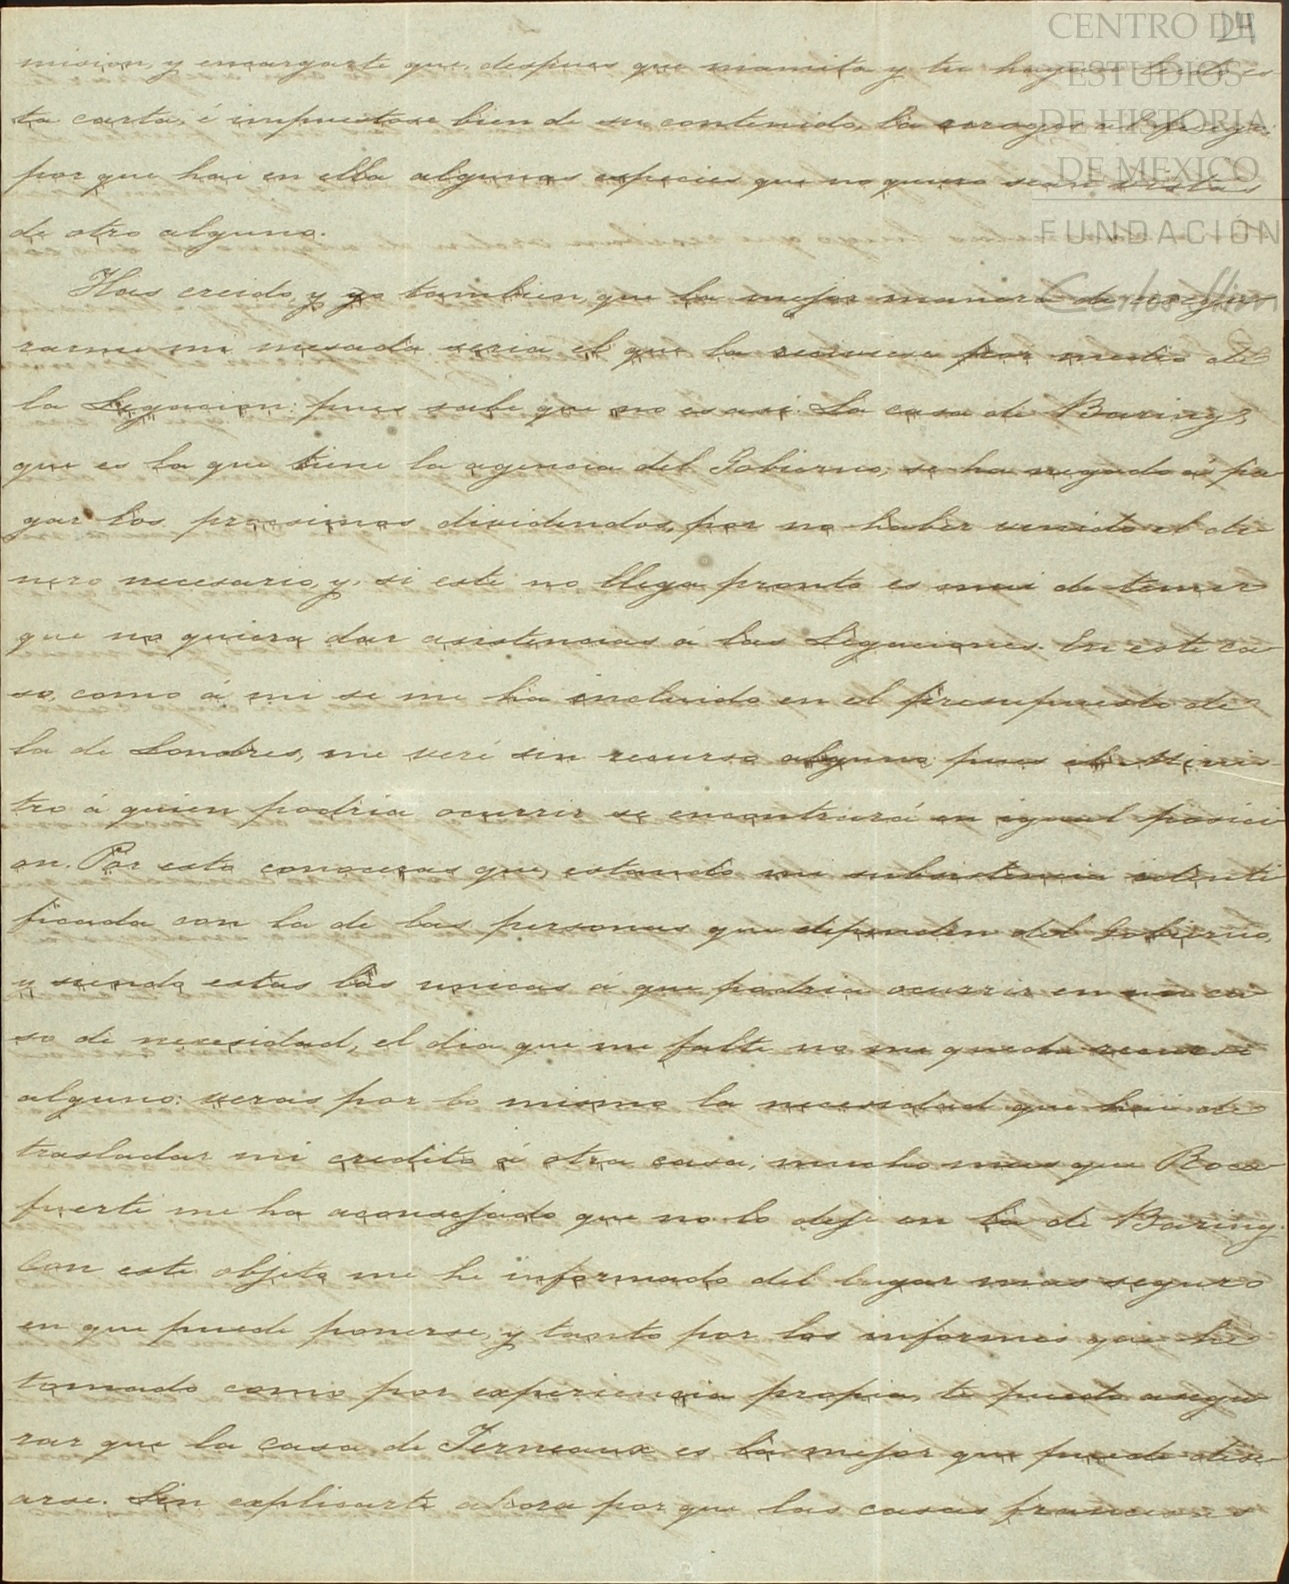 24
CENTRO DE
ESTUDIOS
DE HISTORIA
DE MEXICO
FUNDACIÓN
Carlos Slim
mision, y encargarte que, despues que mamita y tu hayan es-
ta carta, é impuestose bien de su contenido, la
por que hai en ella algunas especies que no quiero sean vistas
de otro alguno.
Has creido, y yo tambien, que la mejor manera de asegu
rarme mi mesada seria el que la recibiese por medio de
la Legacion: pues sabe que no es asi. La casa de Barings,
que es la que tiene la agencia del Gobierno, se ha negado á pa
gar los procsimos dividendos, por no haber venido el di
nero necesario, y si este no llega pronto es mui de temer
que no quiera dar asistencias á las Legaciones. En este ca
so, como á mi se me ha incluido en el presupuesto de
la de Londres, me veré sin recurso alguno pues el Minis-
tro á quien podria ocurrir se encontrará en igual posici
on. Por esto conoceras que, estando mi subsistencia identi
ficada con la de las personas que dependen del Gobierno,
y siendo estas las unicas á que podria ocurrir en un ca
so de necesidad, el dia que me falte no me queda recurso
alguno: veras por lo mismo la necesidad que hai de
trasladar mi credito á otra casa; mucho mas que Roca
fuerte me ha aconsejado que no lo deje en la de Baring.
Con este objeto me he informado del lugar mas seguro
en que puede ponerse, y tanto por los informes que he
tomado como por experiencia propia, te puedo asegu
rar que la casa de Terneaux es la mejor que puede dese
arse. Sin explicarte ahora por que las casas francesas